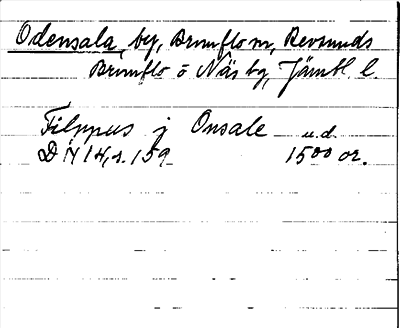 Odensala, by, Brunflo sn, Revsunds
Brunflo o Näs tg, Jämtl. l.
Filppus j Onsale u.d.
DN 14, s. 159 1500 or.